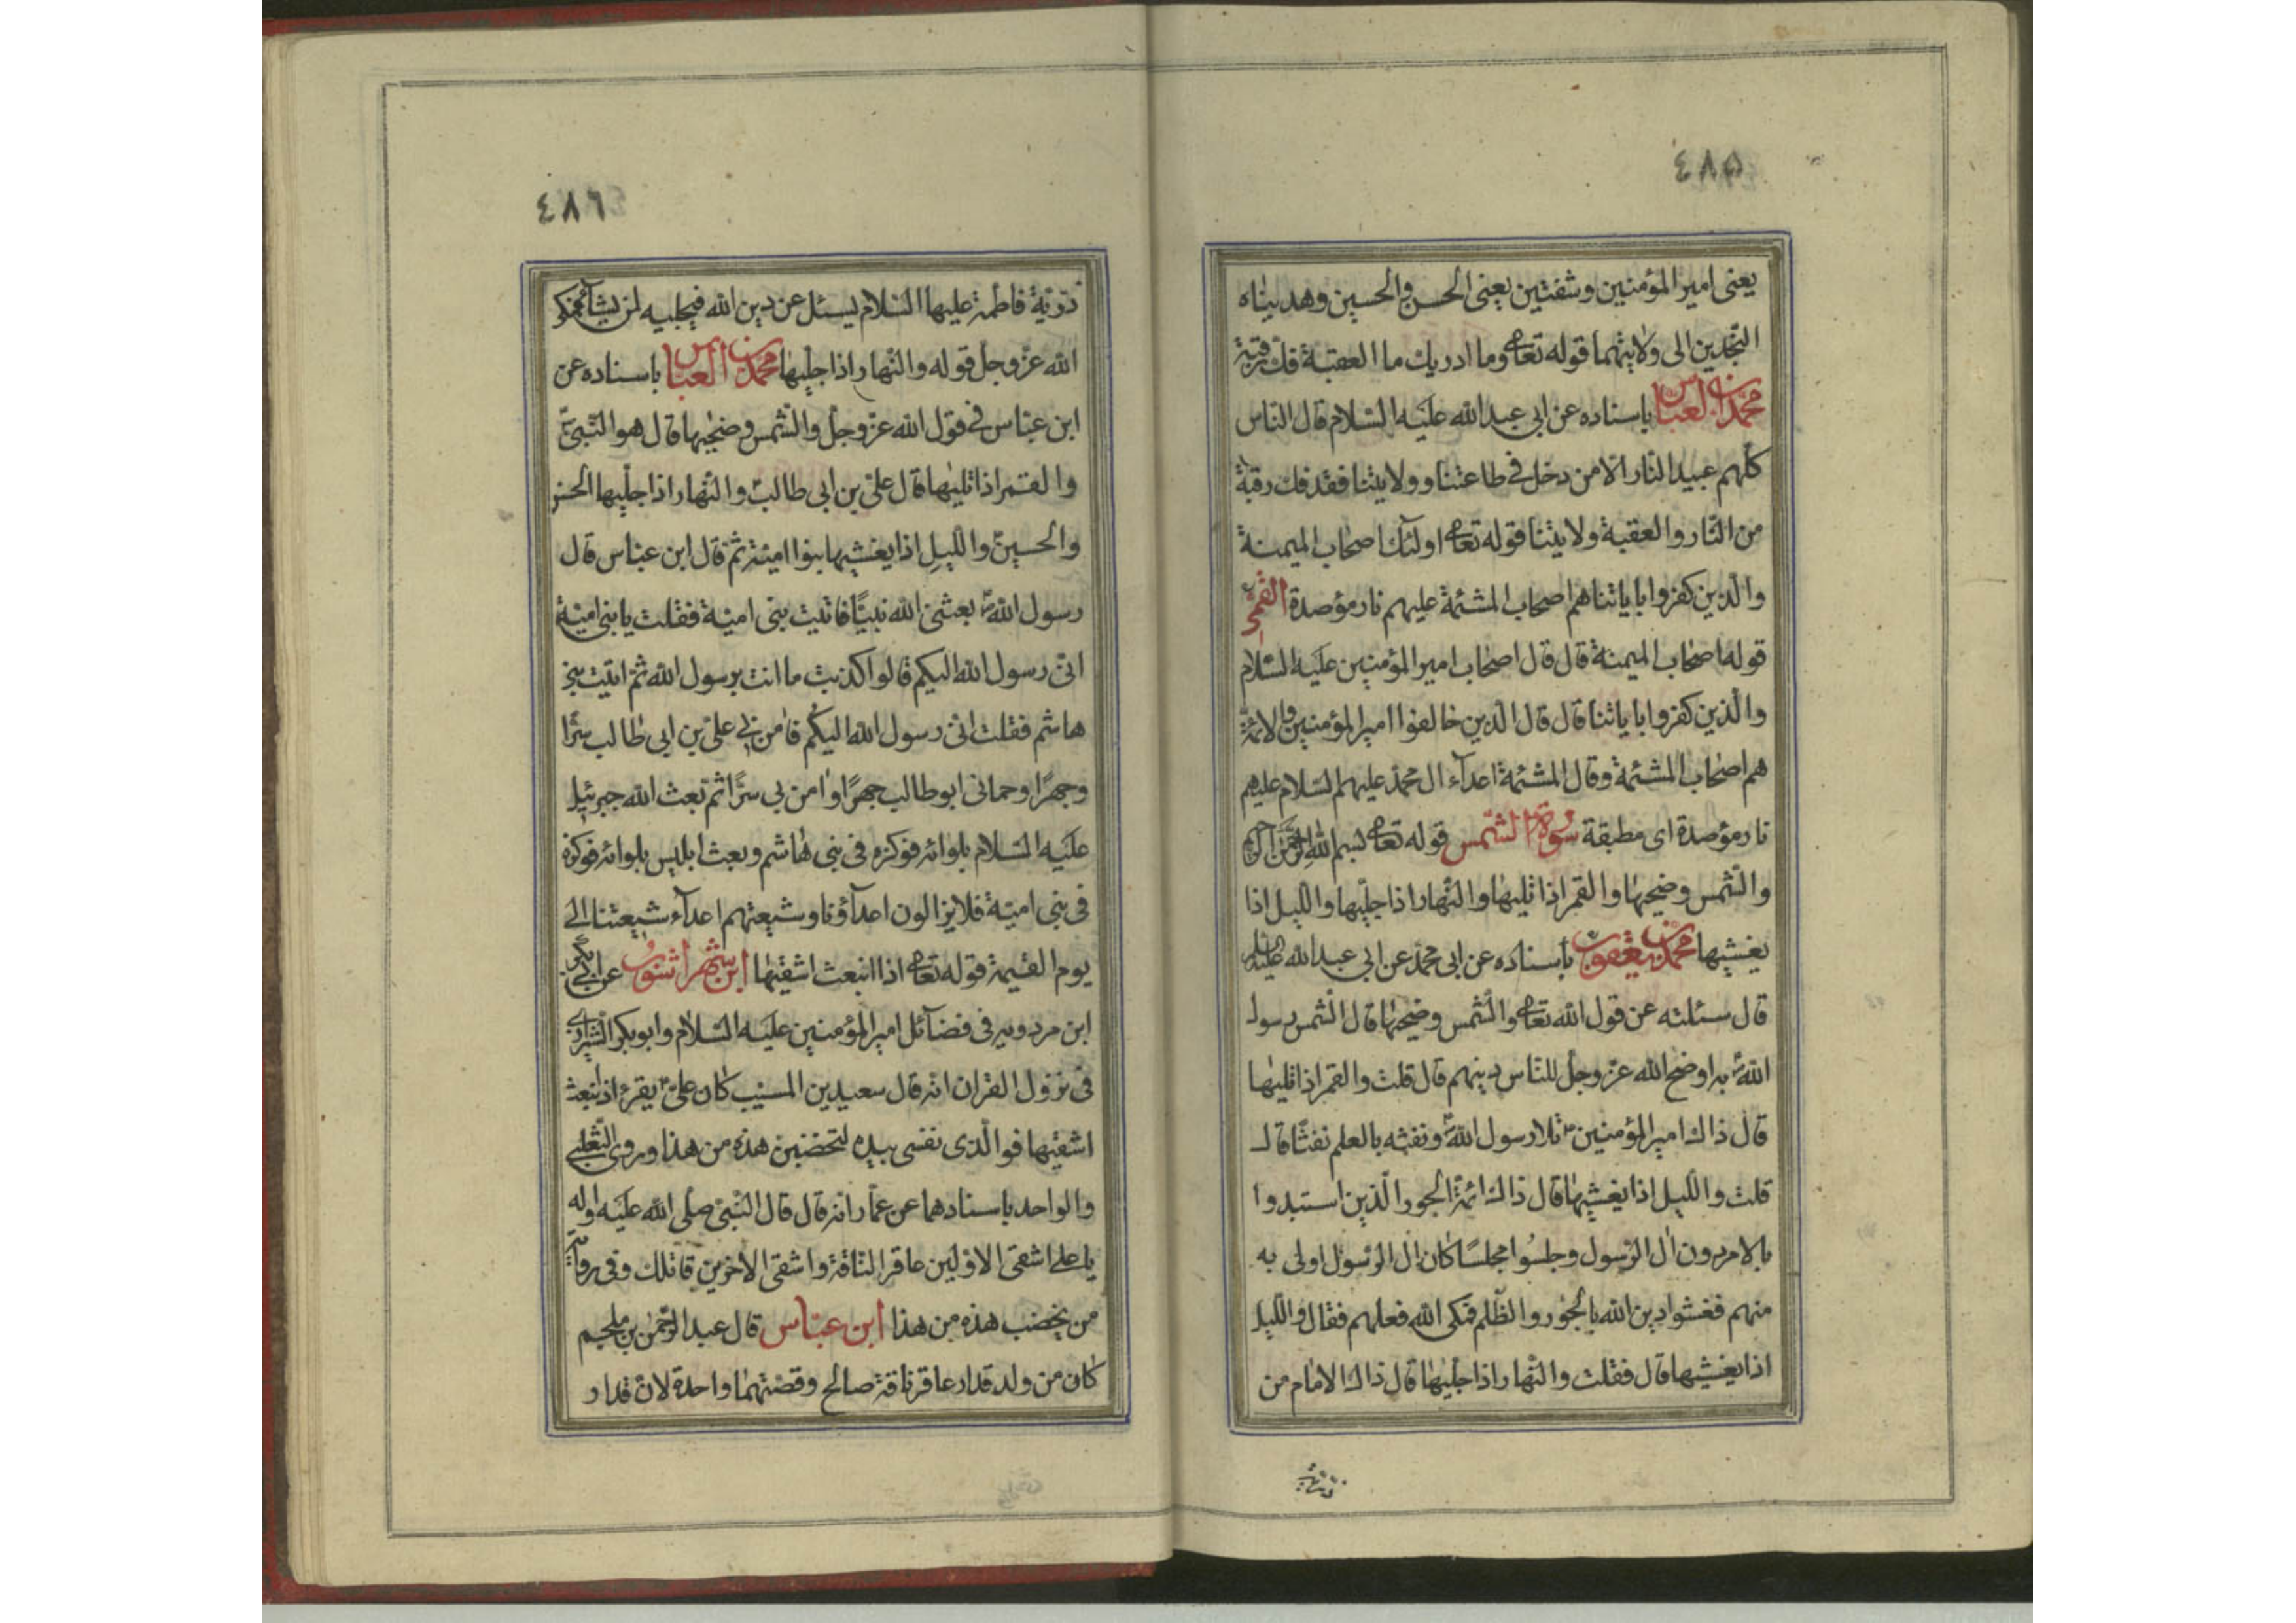 ٤٨٥
يعنى امير المؤمنين وشفتين يعنى الحسن والحسين وهديناه
النجدين الى ولايتهما قوله تعا وما ادريك ما العقبة فك رقبة
محمد بن العباس باسناده عن ابى عبد الله عليه السلام قال الناس
كلهم عبيد النار الا من دخل فى طاعتنا وولايتنا فقد فك رقبة
من النار والعقبة ولايتنا قوله تعا اولئك اصحاب الميمنة
والذين كفروا باياتنا هم اصحاب المشئمة عليهم نار مؤصدة القمى
قوله اصحاب الميمنة قال قال اصحاب امير المؤمنين عليه السلام
والذين كفروا باياتنا قال قال الذين خالفوا امير المؤمنين والائمة
هم اصحاب المشئمة وقال المشئمة اعدآء ال محمد عليهم السلام عليهم
نار مؤصدة اى مطبقة سورة الشمس قوله تعا بسم الله الرحمن الرحيم
والشمس وضحيها والقمر اذا تليها والنهار اذا جليها والليل اذا
يغشيها محمد بن يعقوب باسناده عن ابى محمد عن ابى عبد الله عليه السلام
قال سئلته عن قول الله تعا والشمس وضحيها قال الشمس رسول
الله ص به اوضح الله عز وجل للناس دينهم قال قلت والقمر اذا تليها
قال ذاك امير المؤمنين ع تلا رسول الله ص ونفثه بالعلم نفثا قال
قلت والليل اذا يغشيها قال ذاك ائمة الجور الذين استبدوا
بالامر دون ال الرسول وجلسوا مجلسا كان ال الرسول اولى به
منهم فغشوا دين الله بالجور والظلم فحكى الله فعلهم فقال والليل
اذا يغشيها قال فقلت والنهار اذا جليها قال ذاك الامام من
ذرية
٤٨٦
ذرية فاطمة عليها السلام يسئل عن دين الله فيجليه لمن يسئله فحكى
الله عز وجل قوله والنهار اذا جليها محمد بن العباس باسناده عن
ابن عباس فى قول الله عز وجل والشمس وضحيها قال هو النبى ص
والقمر اذا تليها قال على بن ابى طالب ع والنهار اذا جليها الحسن
والحسين والليل اذا يغشيها بنوا امية ثم قال ابن عباس قال
رسول الله ص بعثنى الله نبيا فاتيت بنى امية فقلت يا بنى امية
انى رسول الله اليكم قالوا كذبت ما انت برسول الله ثم اتيت بنى
هاشم فقلت انى رسول الله اليكم فامن بى على بن ابى طالب سرا
وجهرا وحمانى ابو طالب جهرا وامن بى سرا ثم بعث الله جبرئيل
عليه السلام بلوائه فركزه فى بنى هاشم وبعث ابليس بلوائه فركزه
فى بنى امية فلا يزالون اعدآؤنا وشيعتهم اعدآء شيعتنا الى
يوم القيمة قوله تعا اذا انبعث اشقيها ابن شهر اشوب عن ابى بكر
ابن مردويه فى فضآئل امير المؤمنين عليه السلام وابو بكر الشيرازى
فى نزول القران انه قال سعيد بن المسيب كان على ع يقرء اذ انبعث
اشقيها فوالذى نفسى بيده لتخضبن هذه من هذا وروى الثعلبى
والواحد باسنادهما عن عمار انه قال قال النبى صلى الله عليه واله
يا على اشقى الاولين عاقر الناقة واشقى الاخرين قاتلك وفى رواية
من يخضب هذه من هذا ابن عباس قال عبد الرحمن بن ملجم
كان من ولد قدار عاقر ناقة صالح وقصتهما واحدة لان قدار